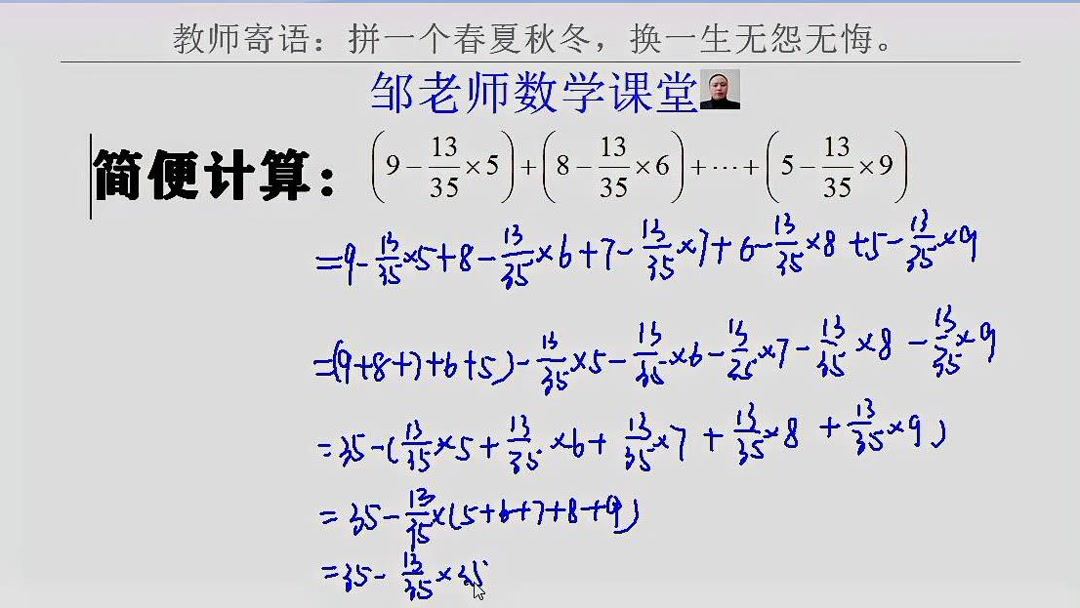 教师寄语：拼一个春夏秋冬，换一生无怨无悔。
邹老师数学课堂
简便计算：(9-13/35×5)+(8-13/35×6)+···+(5-13/35×9)
=9-13/35×5+8-13/35×6+7-13/35×7+6-13/35×8+5-13/35×9
=(9+8+7+6+5)-13/35×5-13/35×6-13/35×7-13/35×8-13/35×9
=35-(13/35×5+13/35×6+13/35×7+13/35×8+13/35×9)
=35-13/35×(5+6+7+8+9)
=35-13/35×35